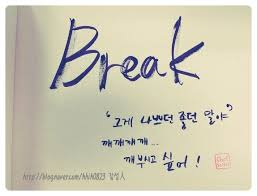 Break
"그게 나쁘던 좋던 말야"
깨깨개개...
깨부시고 싶어!
http://blog.naver.com/hhih0823